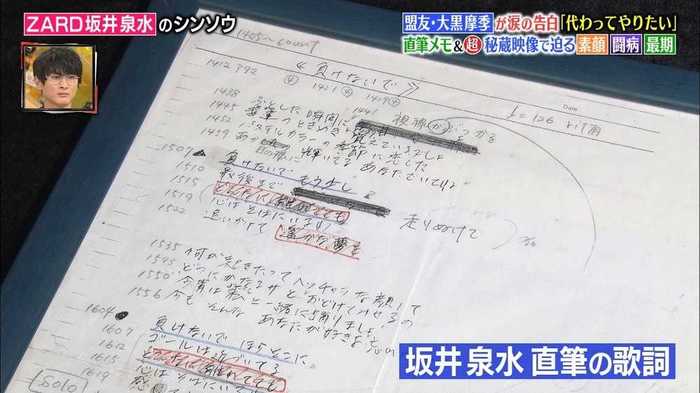 ZARD坂井泉水のシンソウ
盟友・大黒摩季が涙の告白「代わってやりたい」
直筆メモ&超秘蔵映像で迫る 素顔 闘病 最期
1405~count
<負けないで>
1412
Date
1438
1445
1452
1459
パステルカラーの季節に恋した
あの日のように輝いてる あなたでいてね
1507
負けないで もう少し
1510
最後まで
走りぬけて
1515
どんなに離れてても
1519
心はそばにいるわ
1522
追いかけて 遥かな夢を
1535
何が起きたって ヘッチャラな顔して
1545
どうにかなるサと おどけてみせるの
1550
今宵は私と一緒に踊りましょ
1556
今も そんな あなたが好きよ
1604
負けないで ほらそこに
1607
ゴールは近づいてる
1612
どんなに離れてても
1615
心はそばにいる
1619
SOLO
坂井泉水 直筆の歌詞